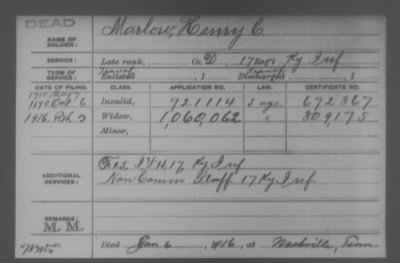 DEAD
NAME OF SOLDIER: Marlow, Henry C.
SERVICE: Late rank, Co. D, 17 Reg't Ky Inf
TERM OF SERVICE: Enlisted , 1 Discharged , 1
DATE OF FILING. CLASS. APPLICATION NO. LAW. CERTIFICATE NO.
Invalid, 721114 672,367
Widow, 1,060,062 809,175
Minor,
ADDITIONAL SERVICES: F 25, I & H, 17, Ky Inf
Non Comm Staff 17 Ky Inf
REMARKS:
M. M.
Died Jan 6, 1916, at Nashville, Tenn